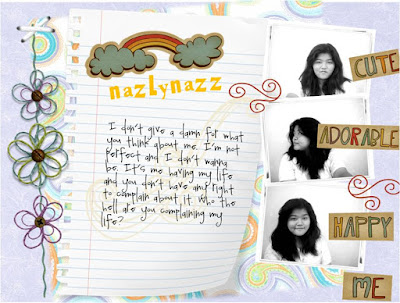 nazlynazz
I don't give a damn for what
you think about me. I'm not
perfect and I don't wanna
be. It's me having my life
and you don't have any right
to complain about it. Who the
hell are you complaining my
life?
CUTE
ADORABLE
HAPPY
ME